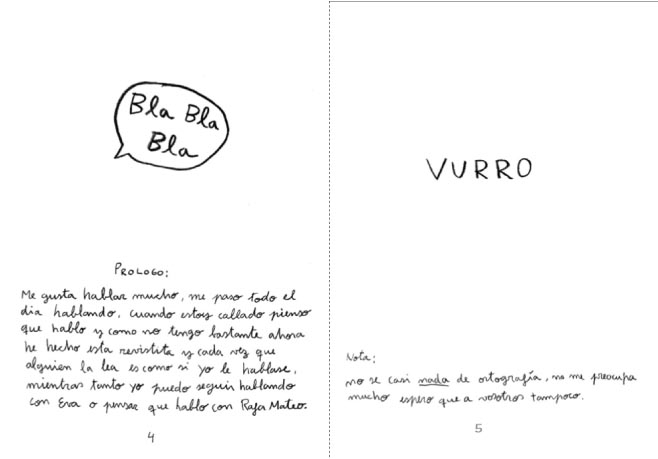 Bla Bla
Bla
PROLOGO:
Me gusta hablar mucho, me paso todo el
dia hablando, cuando estoy callado pienso
que hablo y como no tengo bastante ahora
he hecho esta revistita y cada vez que
alguien la lea es como si yo le hablase,
mientras tanto yo puedo seguir hablando
con Eva o pensar que hablo con Rafa Mateo.
4
VURRO
Nota:
no se casi nada de ortografía, no me preocupa
mucho espero que a vosotros tampoco.
5